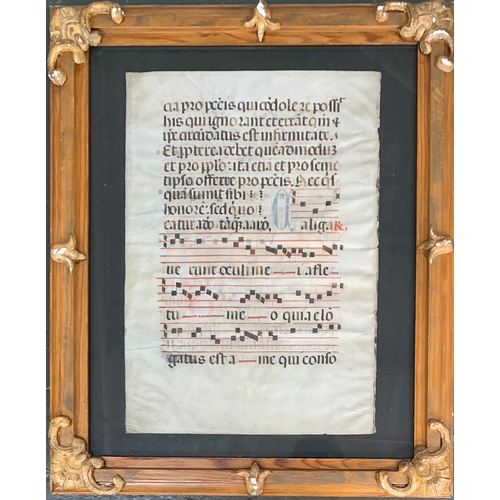 cia pro pctis qui cōdole re poss
his qui ignorant et errant qm̄ et
ipe circūdatus est infirmitate.
Et ppterea debet quēadmodum
et pro pplo: ita etiā et pro seme
tipso offerre pro pctis. Nec qs
quā sumit sibi
honorē: sed quo
catur a do tāq̄ aarō. Caligar R.
ue runt oculi me i a fle
tu me o quia elō
gatus est a me qui conso